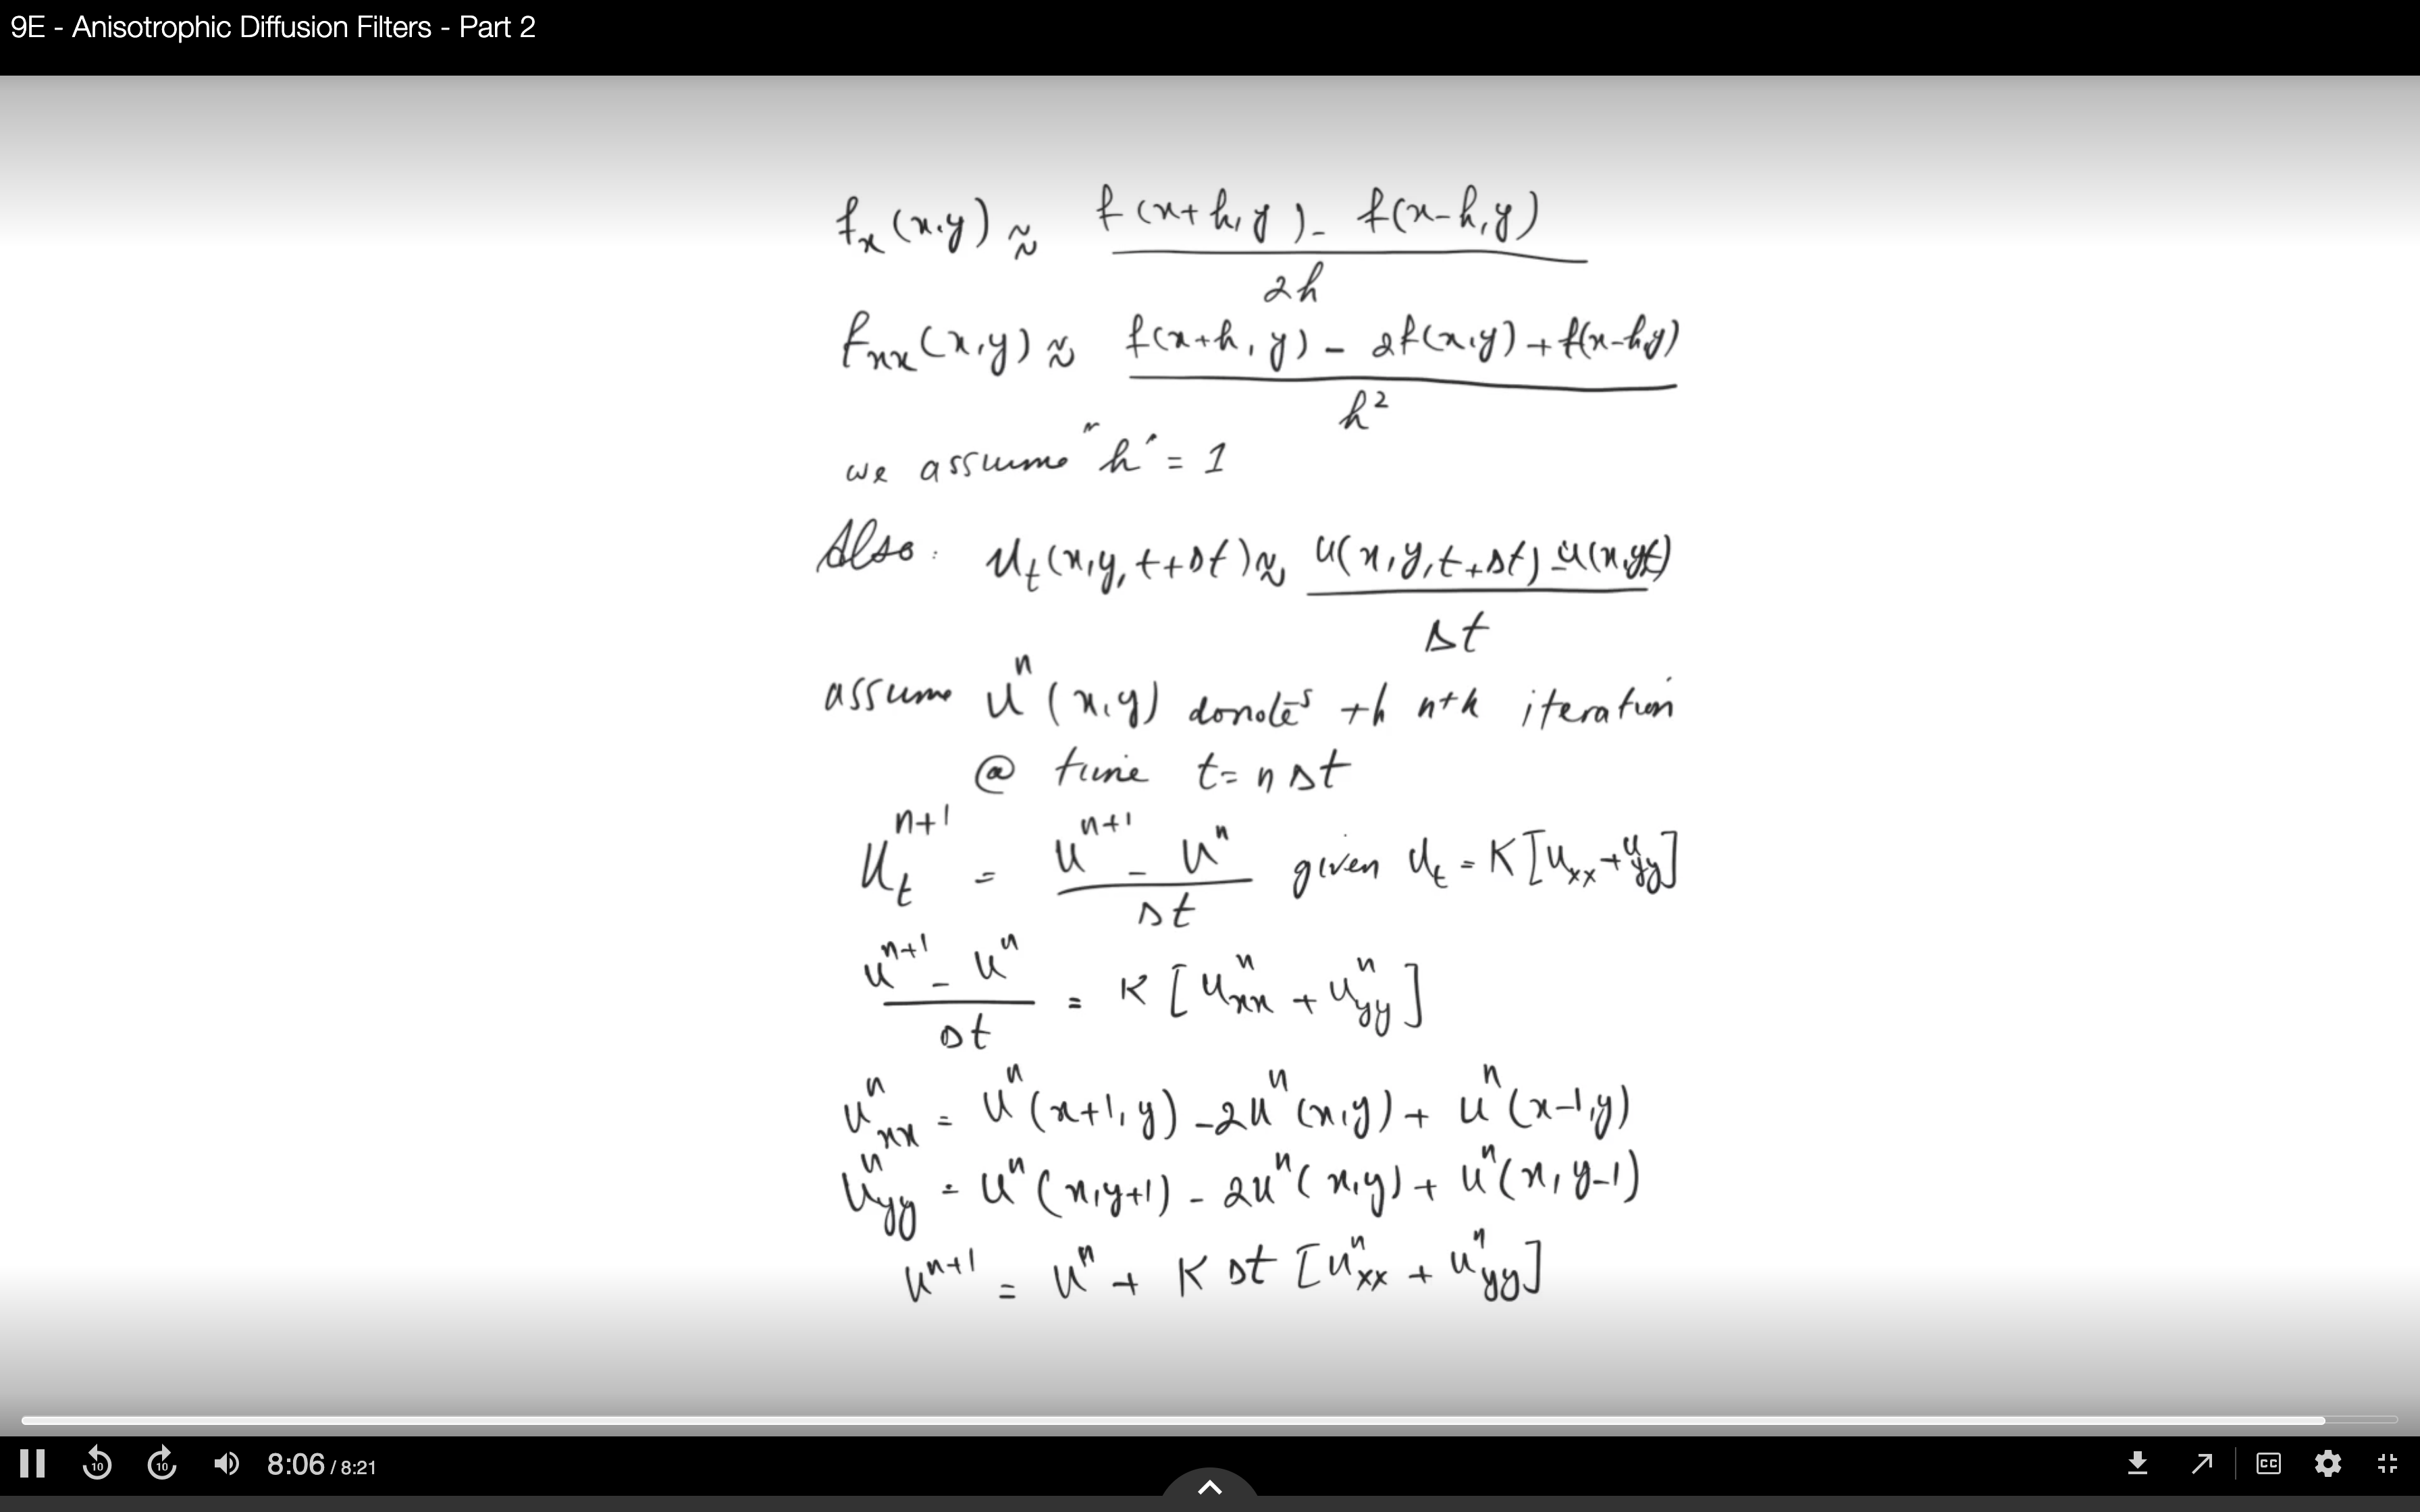 9E - Anisotrophic Diffusion Filters - Part 2
f_x(x,y) ≈ (f(x+h,y) - f(x-h,y)) / 2h
f_xx(x,y) ≈ (f(x+h,y) - 2f(x,y) + f(x-h,y)) / h²
we assume "h" = 1
Also: u_t(x,y,t+Δt) ≈ (u(x,y,t+Δt) - u(x,y,t)) / Δt
assume uⁿ(x,y) donotes th nth iteration
@ time t = nΔt
u_t^{n+1} = (u^{n+1} - uⁿ) / Δt given u_t = K[u_xx + u_yy]
(u^{n+1} - uⁿ) / Δt = K[uⁿ_xx + uⁿ_yy]
uⁿ_xx = uⁿ(x+1,y) - 2uⁿ(x,y) + uⁿ(x-1,y)
uⁿ_yy = uⁿ(x,y+1) - 2uⁿ(x,y) + uⁿ(x,y-1)
u^{n+1} = uⁿ + K Δt [uⁿ_xx + uⁿ_yy]
10 10 8:06 / 8:21 CC